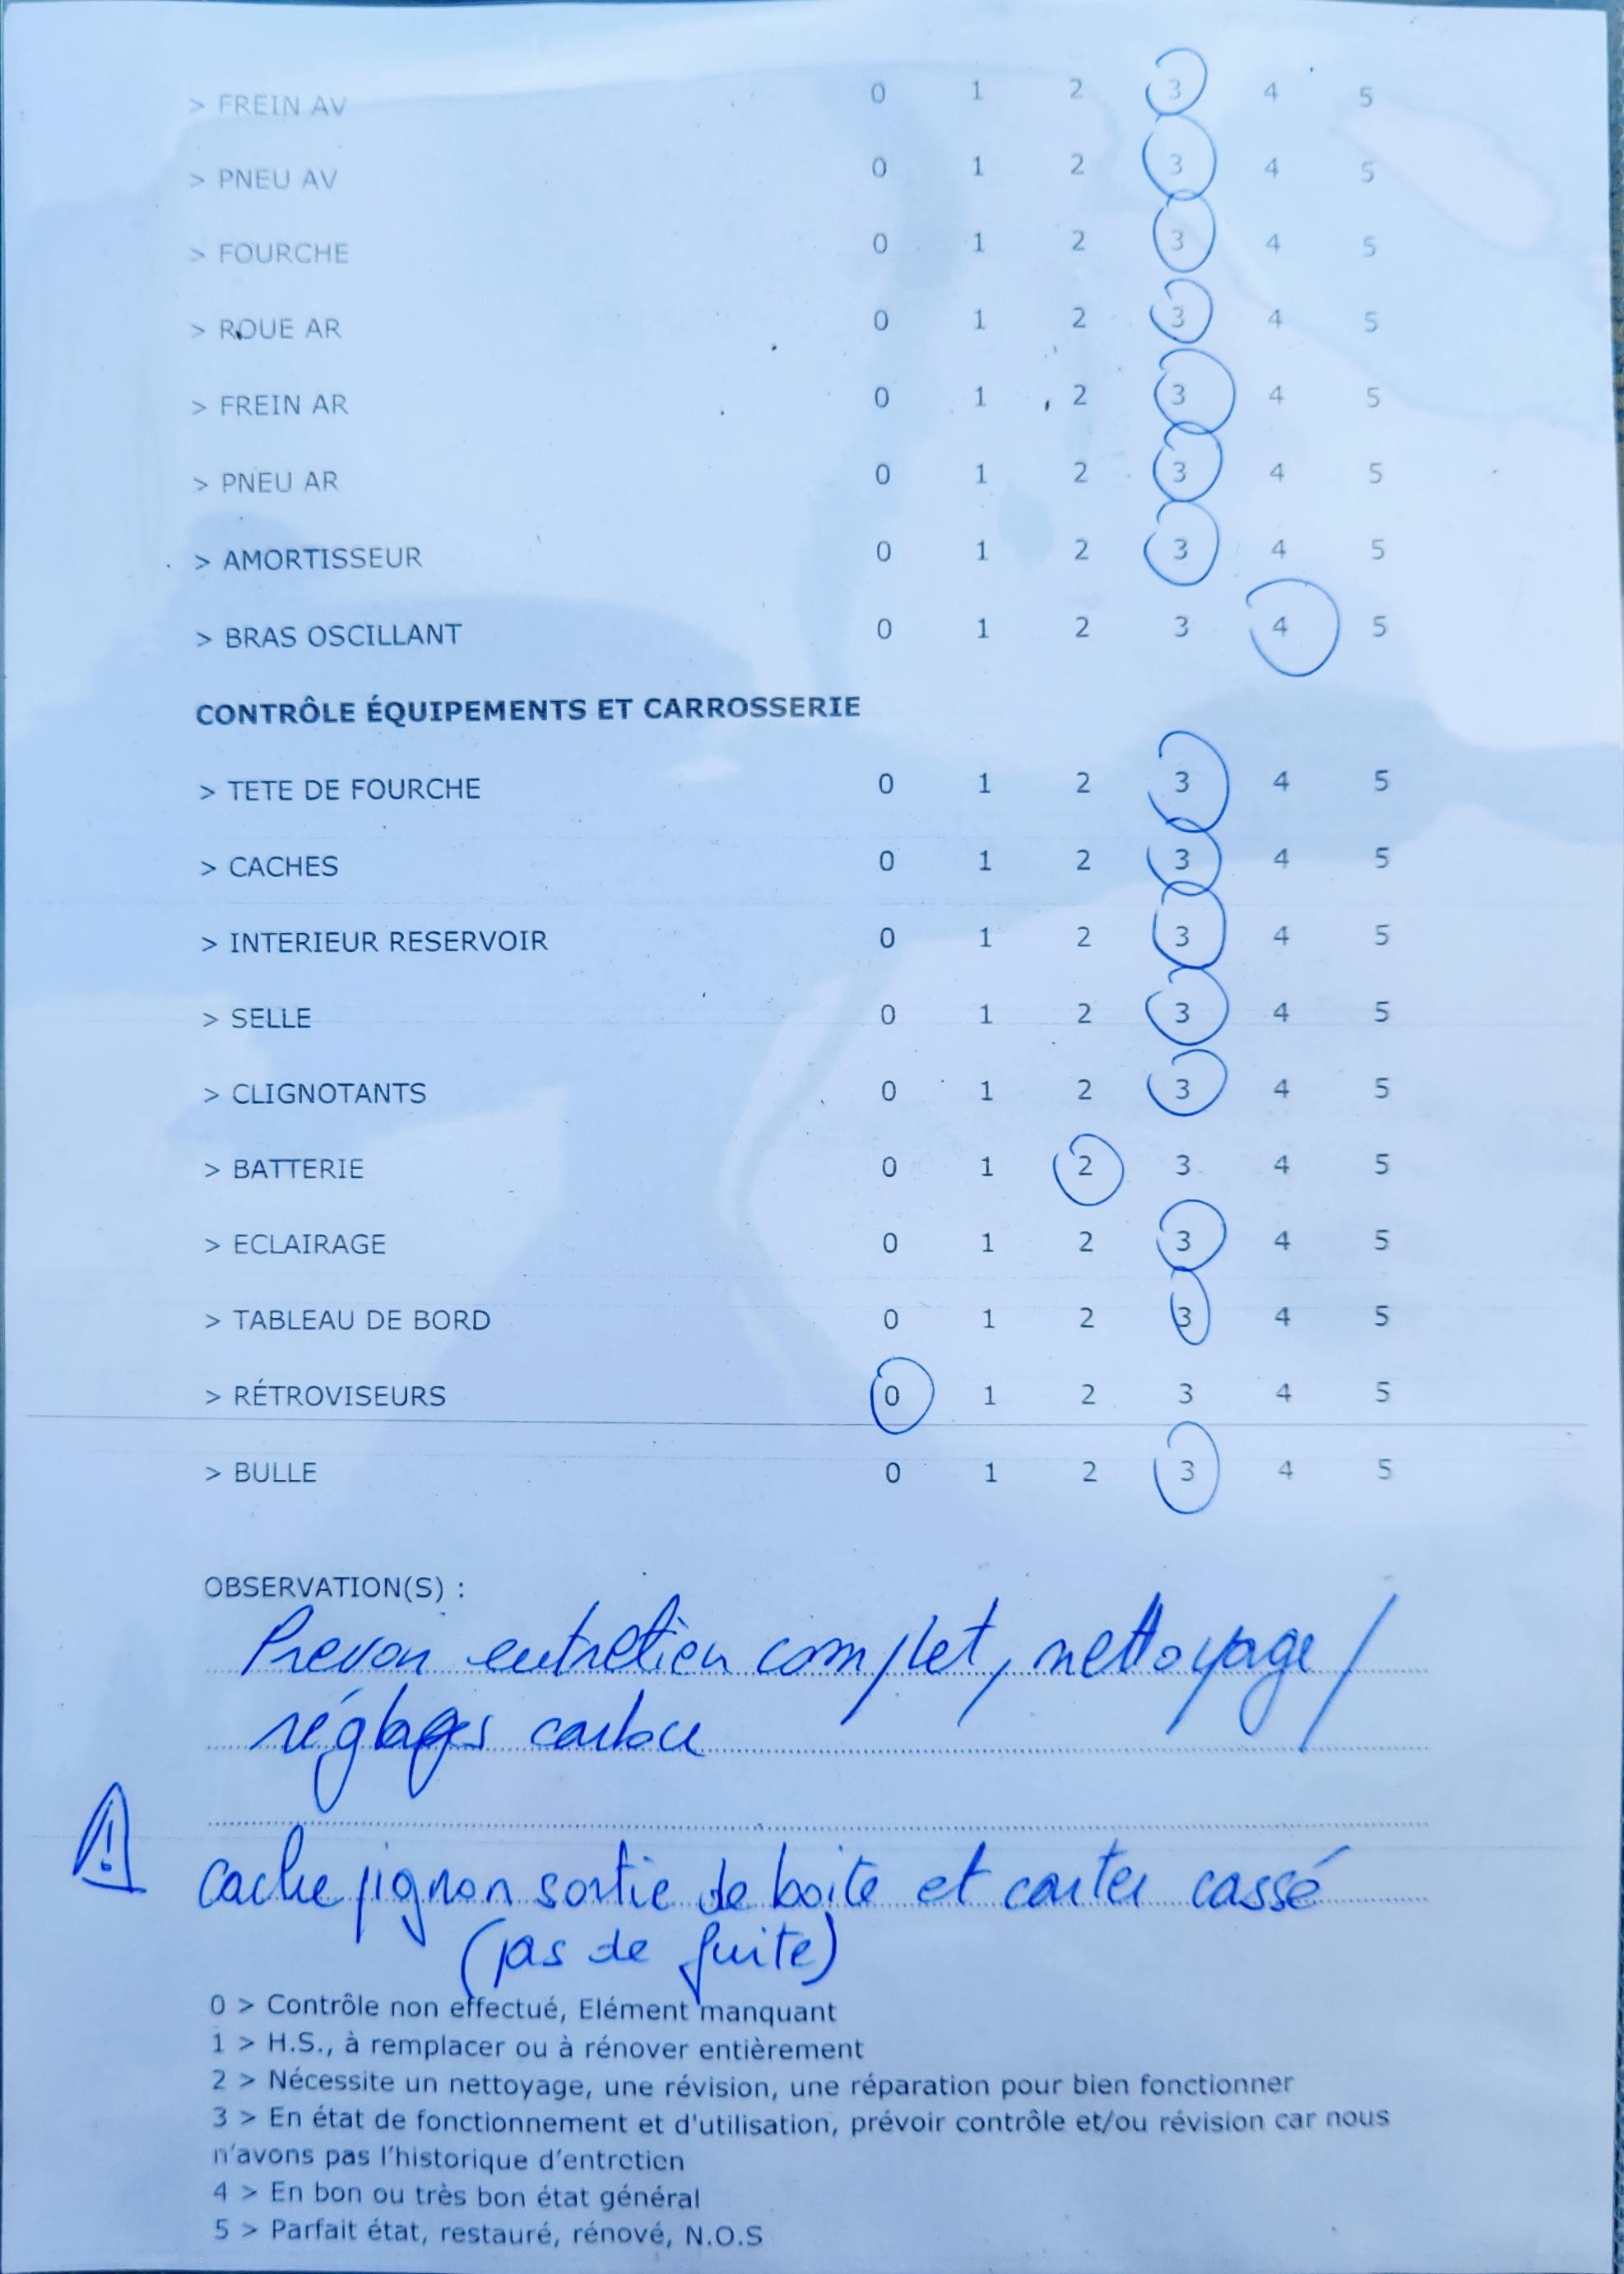 > FREIN AV 0 1 2 3 4 5
> PNEU AV 0 1 2 3 4 5
> FOURCHE 0 1 2 3 4 5
> ROUE AR 0 1 2 3 4 5
> FREIN AR 0 1 2 3 4 5
> PNEU AR 0 1 2 3 4 5
> AMORTISSEUR 0 1 2 3 4 5
> BRAS OSCILLANT 0 1 2 3 4 5
CONTRÔLE ÉQUIPEMENTS ET CARROSSERIE
> TETE DE FOURCHE 0 1 2 3 4 5
> CACHES 0 1 2 3 4 5
> INTERIEUR RESERVOIR 0 1 2 3 4 5
> SELLE 0 1 2 3 4 5
> CLIGNOTANTS 0 1 2 3 4 5
> BATTERIE 0 1 2 3 4 5
> ECLAIRAGE 0 1 2 3 4 5
> TABLEAU DE BORD 0 1 2 3 4 5
> RÉTROVISEURS 0 1 2 3 4 5
> BULLE 0 1 2 3 4 5
OBSERVATION(S) :
entretien complet, nettoyage /
réglages carbu
! cache pignon sortie de boite et carter cassé
(pas de fuite)
0 > Contrôle non effectué, Elément manquant
1 > H.S., à remplacer ou à rénover entièrement
2 > Nécessite un nettoyage, une révision, une réparation pour bien fonctionner
3 > En état de fonctionnement et d'utilisation, prévoir contrôle et/ou révision car nous
n'avons pas l'historique d'entretien
4 > En bon ou très bon état général
5 > Parfait état, restauré, rénové, N.O.S